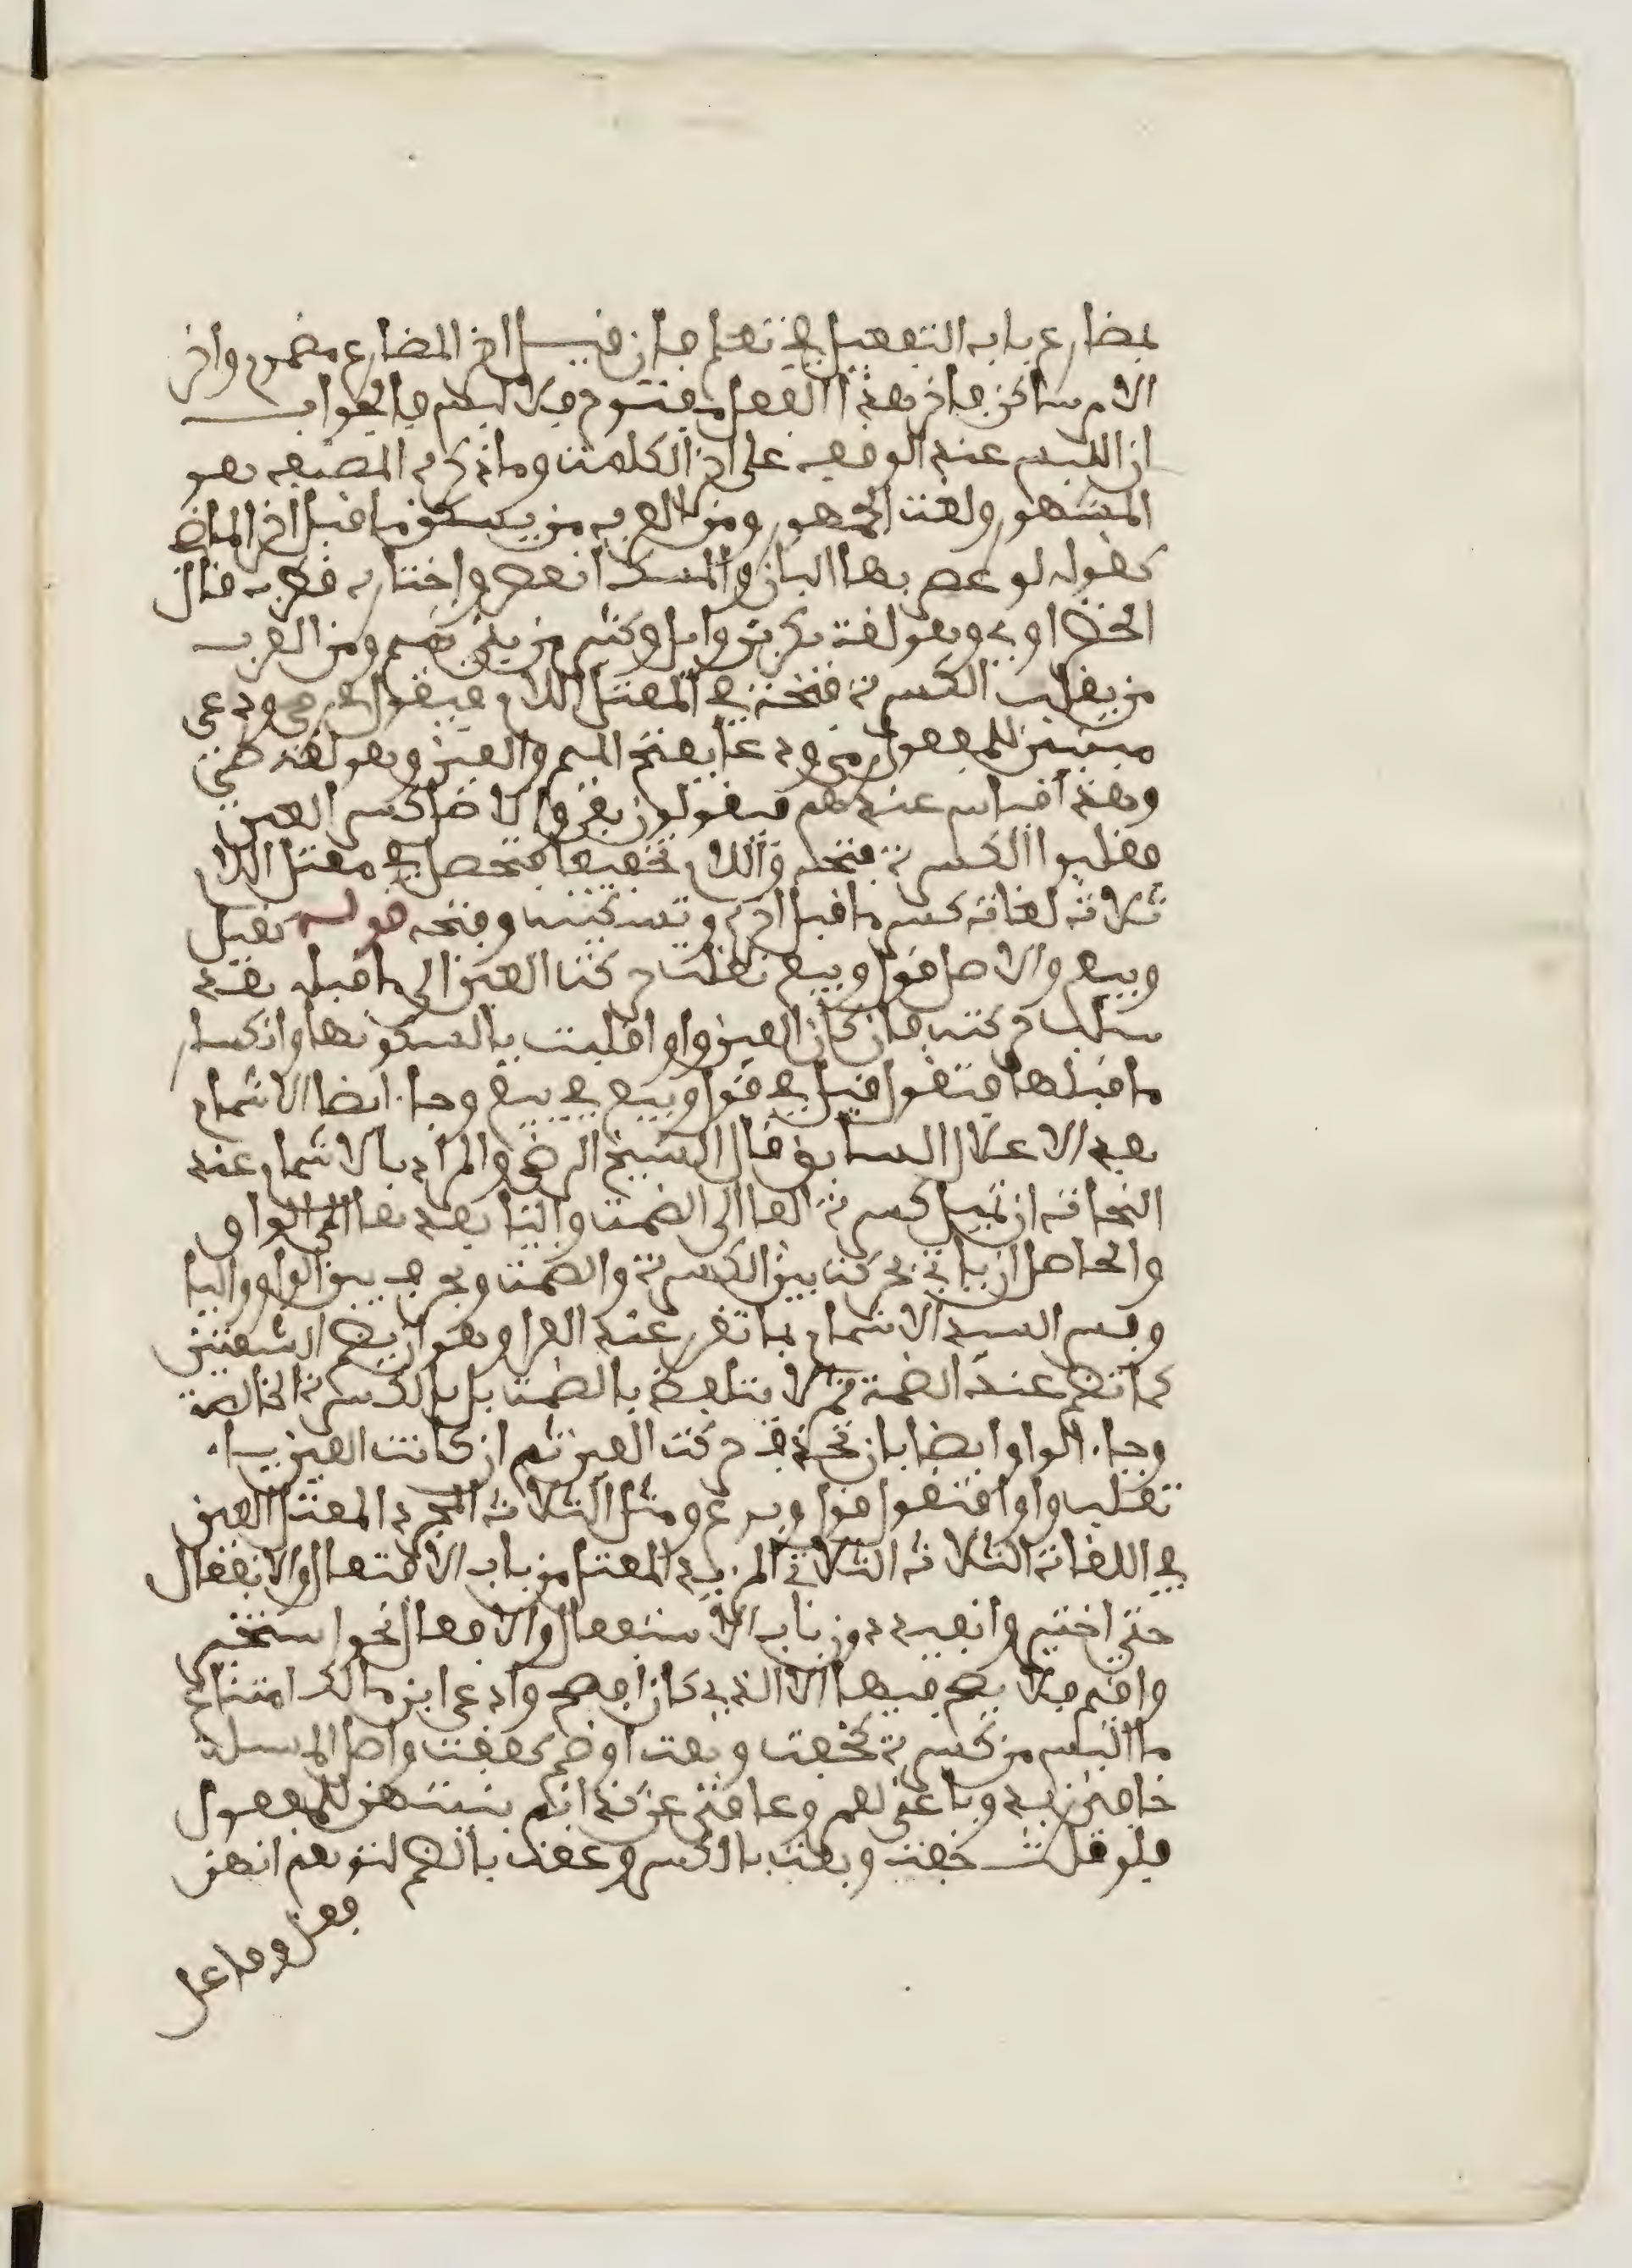 بمضارع باب التفعيل في تعلم فان قيل اخر المضارع مضموم واخر
الامر ساكن فاخر هذا الفعل مفتوح فلا لبس فالجواب
ان اللبس عند الوقف على اخر الكلمت وما ذكره المصنف هو
المشهور ولغت الجمهور ومن العرب من يسكن ما قبل اخر الماض
كقوله لو عصر بها البان والمسك انعصر واختاره قطرب قال
الخضراوي وهو لغة بكر بن وايل وكثير من بني تميم ومن العرب
من يقلب الكسرة فتحة في المعتل اللام فيقول في رمي ودعي
مبنيين للمفعول رمى ودعا بفتح الميم والعين وهو لغة طي
وهذا قياس عندهم فيقولون بفزوا لا ضا كسر العين
فقلبوا الكسرة فتحه واللام تخفيفا فتحصل في معتل اللام
ثلاثة لغات كسر ما قبل اخره وتسكينه وفتحه قوله نقيل
وبيع والاصل قول وبيع نقلت حركت العين الى ما قبله بعد
سلب حركته فان كان العين واوا قلبت يا لسكونها وانكسار
ما قبلها فتقول قيل في قول وبيع في بيع وجاء ايضا الاشمام
بعد الاعلال السابق قال الشيخ الرضي والمراد بالاشمام عند
النحاة ان تميل كسرة الفا الى الضمت واليا بعدها الى الواو
والحاصل ان ياتي بحركت بين الكسرة والضمت وبحرف بين الواو واليا
وفسر السيد الاشمام بما تقرر عند القرا وهو ان يضم الشفتين
كما تضم عند الضمة ثم لا يتلفظ بالضمت بل بالكسرة الخالصة
وجاء الواو ايضا بان تحذف حركت العين ثم ان كانت العين ياء
تقلب واوا فتقول قول وبوع ومثل الثلاثة المجرد المعتل العين
في اللغات الثلاثة الثلاثي المزيد المعتل من باب الافتعال والانفعال
حتى اختير وانقيد دون باب الاستفعال والافعال نحو استخير
واقيم فلا يضم فيها الا الذي كان افصح وادعى ابن مالك امتناع
ما البس من كسرة كخفت وبعت او ضم كعفت واصل المسلة
خافني زيد وباعني لعمرو وعاقني عن كذا ثم بنيتهن للمفعول
فلو قلت خفت وبعت بالكسر وعقت بالضم لتوهم انهن
فعل وفاعل